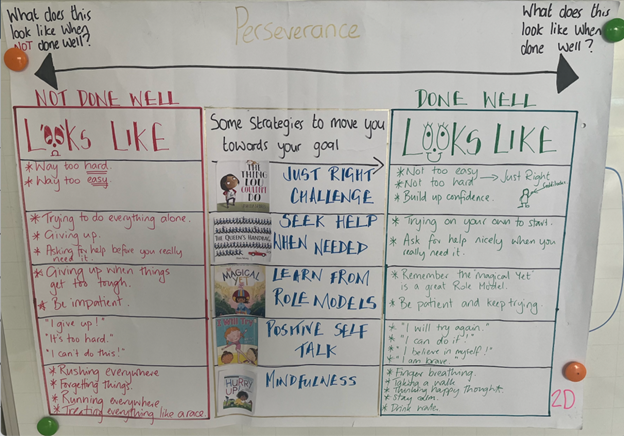 What does this
look like when
NOT done well?
Perseverance
What does this
look like when
done well?
NOT DONE WELL
LOOKS LIKE
* Way too hard.
* Way too easy.
* Trying to do everything alone.
* Giving up.
* Asking for help before you really
need it.
* Giving up when things
get too tough.
* Be impatient.
"I give up!"
"It's too hard."
"I can't do this!"
* Rushing everywhere
* Forgetting things.
* Running everywhere
* Treating everything like a race.
Some strategies to move you
towards your goal
THE
THING
LOU
COULDN'T
DO
JUST RIGHT
CHALLENGE
THE QUEEN'S HANDBAG
SEEK HELP
WHEN NEEDED
MAGICAL
YET
LEARN FROM
ROLE MODELS
POSITIVE SELF
TALK
HURRY
UP!
MINDFULNESS
DONE WELL
LOOKS LIKE
* Not too easy
* Not too hard
Just Right
* Build up confidence.
* Trying on your own to start.
* Ask for help nicely when you
really need it.
* Remember the magical 'Yet'
is a great Role Model.
* Be patient and keep trying.
* "I will try again."
* "I can do it!"
* "I believe in myself!"
* "I am brave."
* Finger breathing.
* Taking a walk
* Thinking happy thoughts
* Stay calm.
* Drink water.
2D